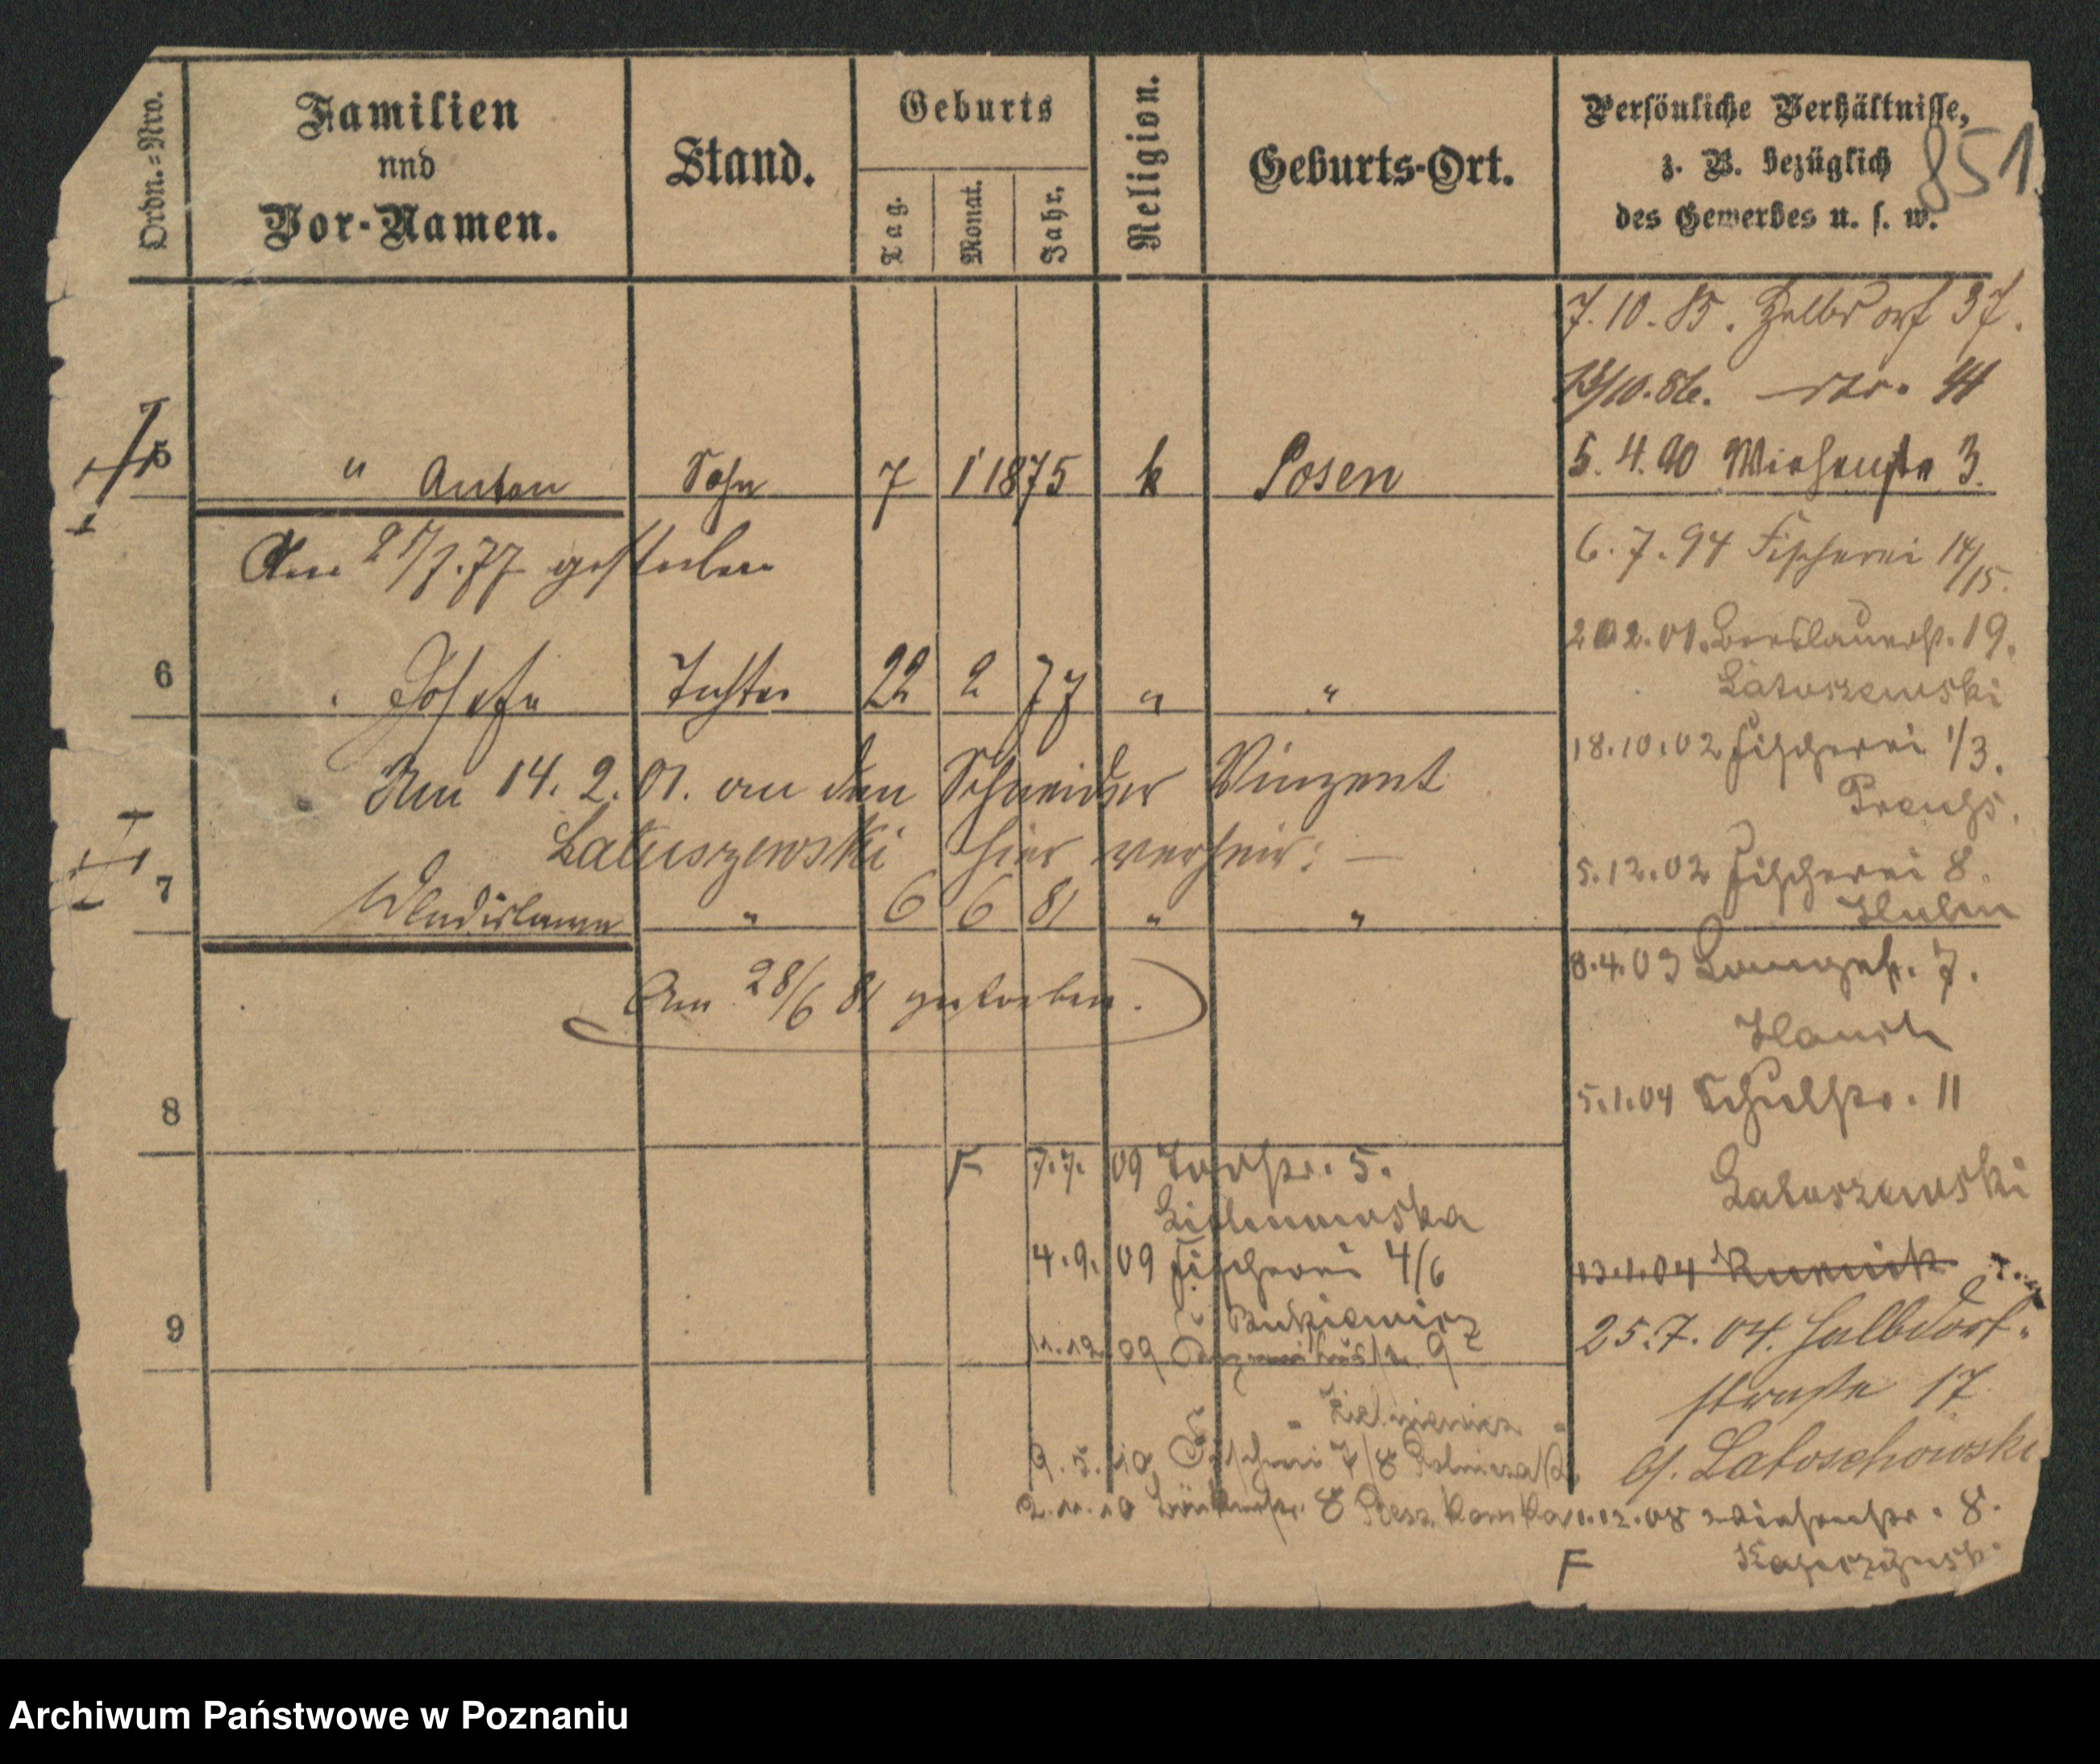 Ordn.=Nro.
Familien
und
Vor-Namen.
Stand.
Geburts
Tag.
Monat.
Jahr.
Religion.
Geburts-Ort.
Persönliche Verhältnisse,
z. B. bezüglich
des Gewerbes u. s. w.
851
7.10.85. Halbdorf 37.
/10.86. 41
5 " Anton Sohn 7 1 1875 k Posen
5. 4. 90 Wiesenstr 3.
Am 21/7.77 gestorben
6. 7. 94 Fischerei 14/15.
6 Josefa Tochter 22 2 77 " "
2.02.01. Breslauerst. 19.
Latuszewski
Am 14. 2. 01. an den Schneider Vinzent
Latuszewski hier verheir: —
18.10.02 Fischerei 1/3.
7 Wladislawa " 6 6 81 " "
5.12.02 Fischerei 8.
Am 28/6 81 gestorben.
8.4.03 Langestr. 7.
8
5.1.04 Schulstr. 11
Latuszewski
F 7.7. 09 Torstr. 5.
4.9. 09 Fischerei 4/6
13.1.04 Kurnik
9
11.12.09 9
25.7.04. Halbdorf-
strasse 17
b/. Latoschowski
9.5.10 Fischerei 7/8
2.11.10 Bäckerstr. 8
1.12.08 Wiesenstr. 8.
F
Archiwum Państwowe w Poznaniu